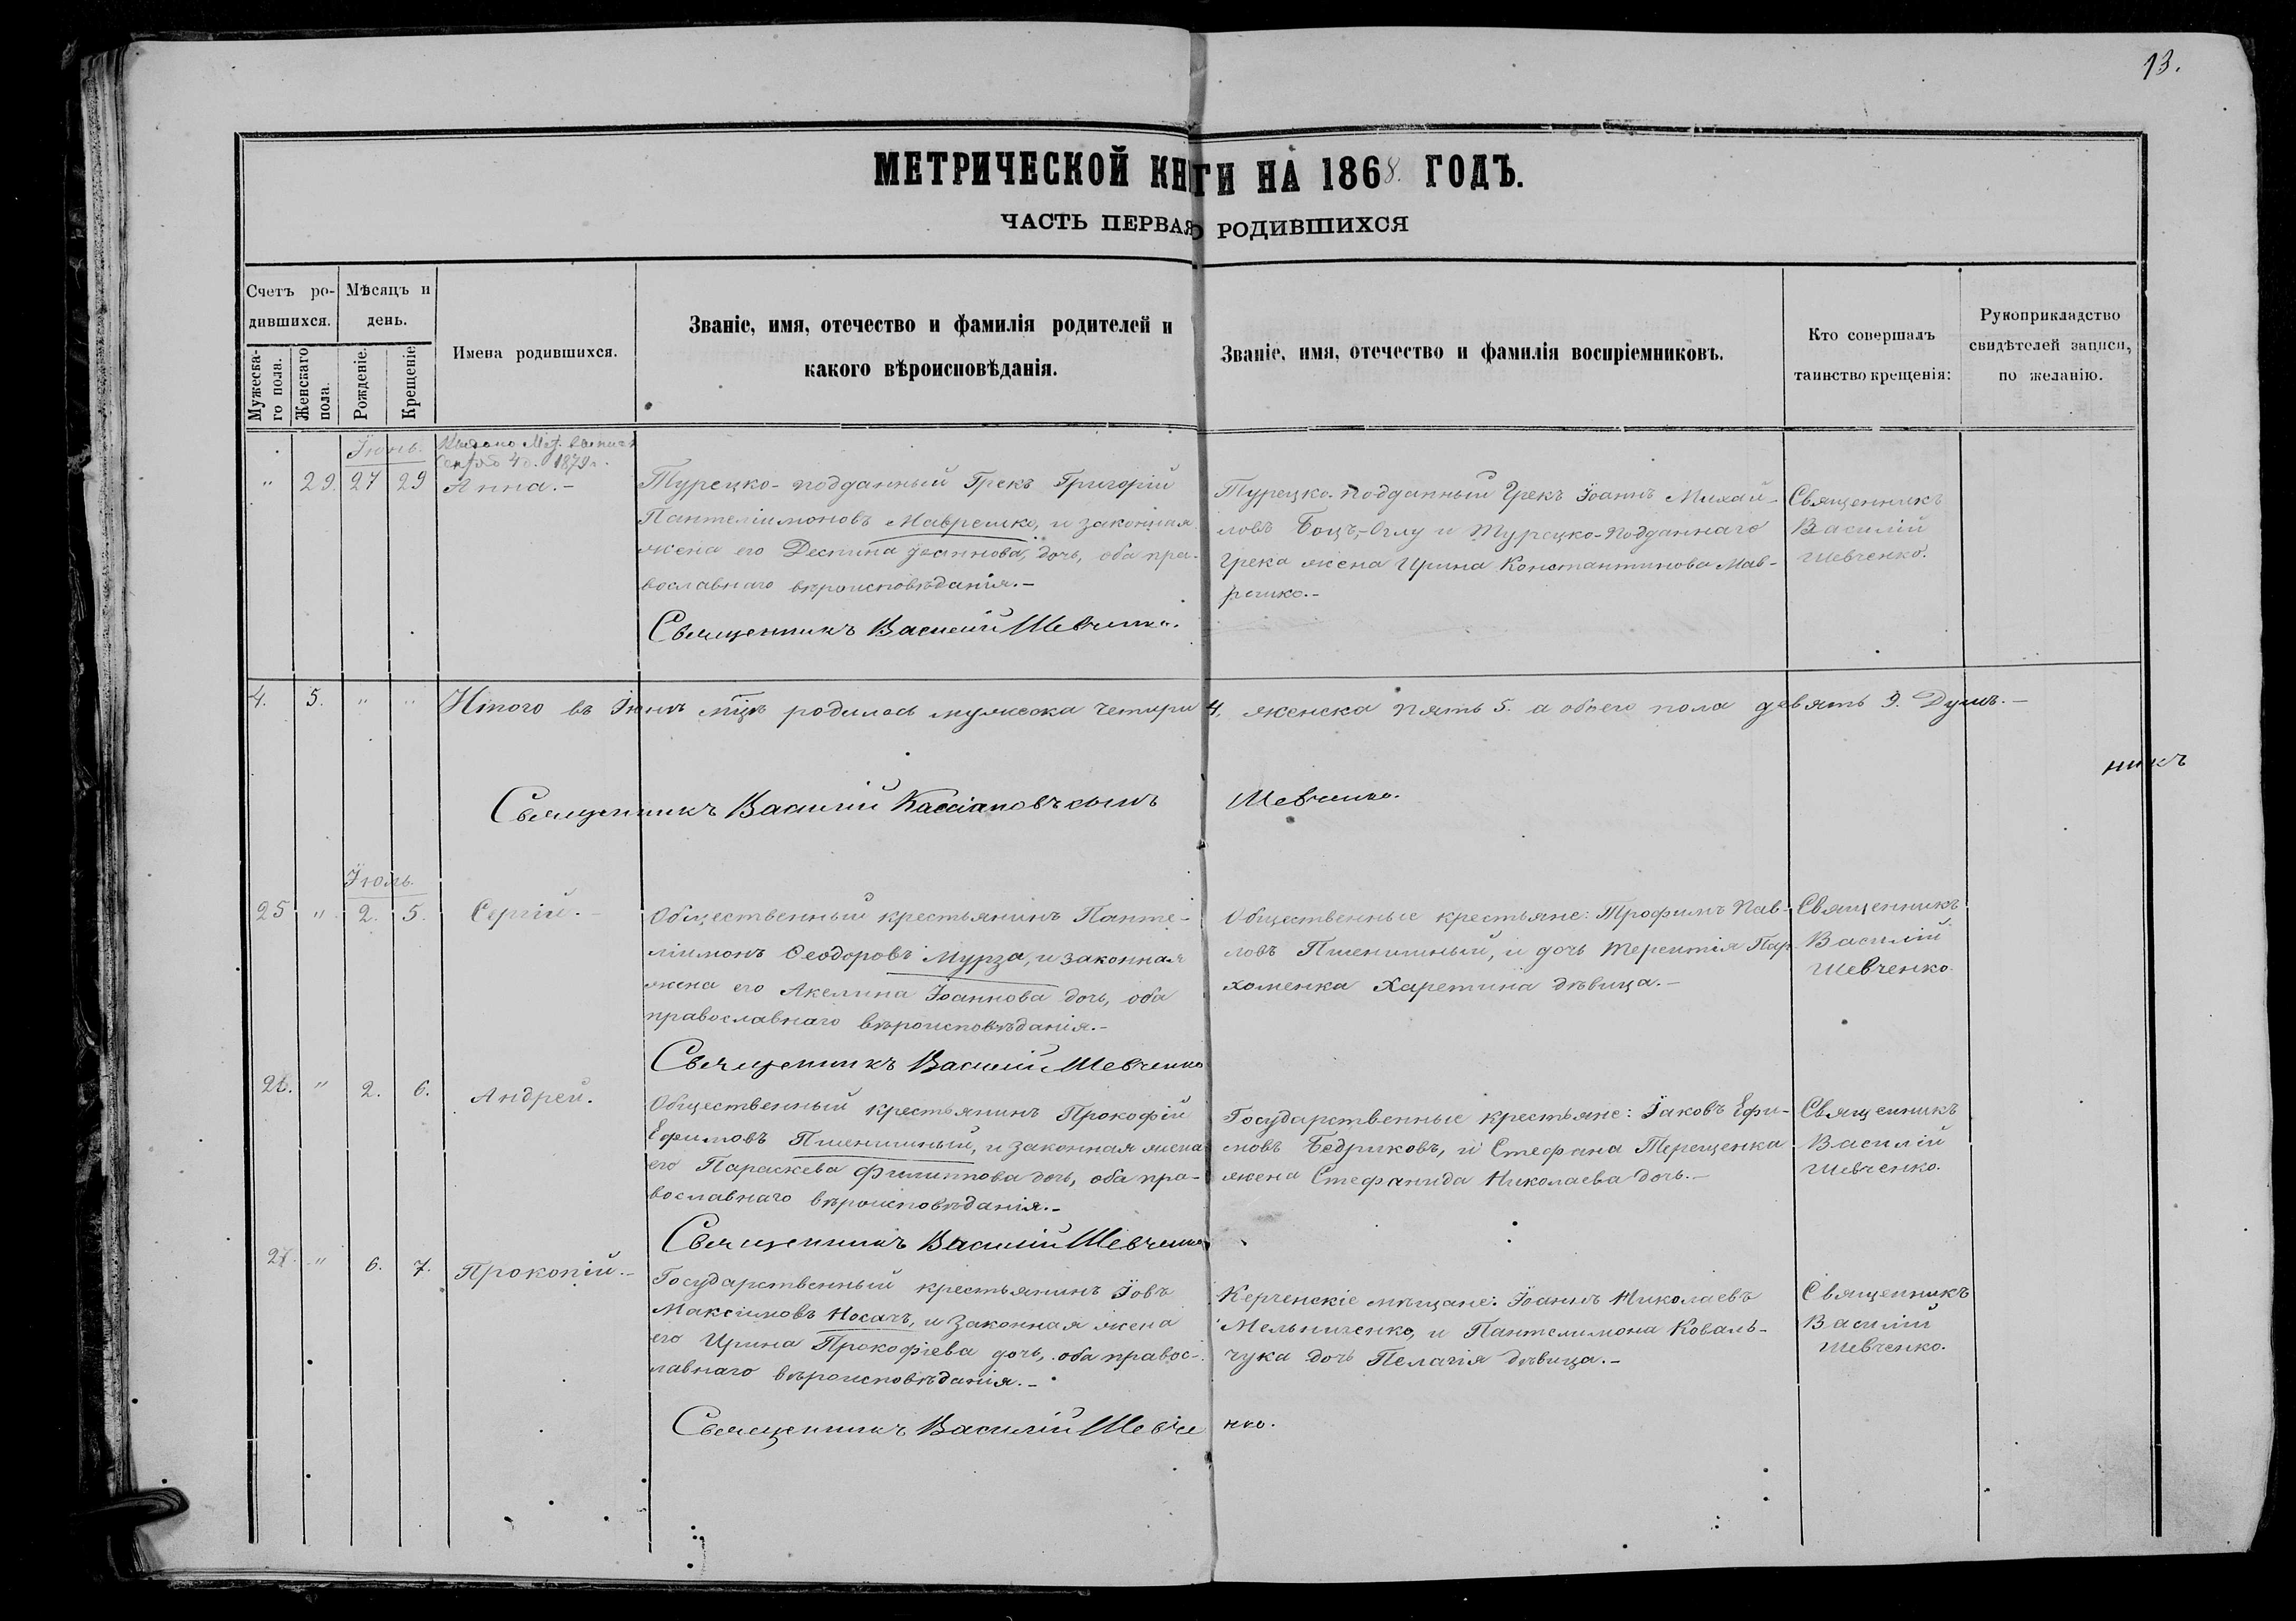 13.
МЕТРИЧЕСКОЙ КНИГИ НА 1868. ГОДЪ.
ЧАСТЬ ПЕРВАЯ О РОДИВШИХСЯ
Счетъ родившихся.
Мужеска-
го пола.
Женскаго
пола.
Мѣсяцъ и
день.
Рожденіе.
Крещеніе
Имена родившихся.
Званіе, имя, отечество и фамилія родителей и
какого вѣроисповѣданія.
Званіе, имя, отечество и фамилія воспріемниковъ.
Кто совершалъ
таинство крещенія:
Рукоприкладство
свидѣтелей записи,
по желанію.
Іюнь.
1879 г.
" 29. 27 29 Анна.-
Турецко-подданный Грекъ Григорій
Пантеліимоновъ Маврешко, и законная
жена его Деспина Іоаннова, дочь, оба пра-
вославнаго вѣроисповѣданія.-
Священникъ Василій Шевченко.
Турецко-подданный Грекъ Іоаннъ Михай-
ловъ Боцъ-Оглу и Турецко-подданнаго
Грека жена Ирина Константинова Мав-
решко.-
Священникъ
Василій
Шевченко.
4. 5. " " Итого въ Іюнѣ мцѣ родилось мужеска четыри 4, женска пять 5. а обоего пола девять 9. Душъ.-
никъ
Священникъ Василій Кассіановъ сынъ Шевченко.
Іюль.
25 " 2. 5. Сергій.-
Общественный крестьянинъ Панте-
ліимонъ Ѳеодоровъ Мурза, и законная
жена его Акелина Іоаннова дочь, оба
православнаго вѣроисповѣданія.-
Священникъ Василій Шевченко
Общественные крестьяне: Трофимъ Пав-
ловъ Пшенишный, и дочь Терентія Пар-
хоменка Харетина дѣвица.-
Священникъ
Василій
Шевченко.
26. " 2. 6. Андрей.
Общественный крестьянинъ Прокофій
Ефимовъ Пшенишный, и законная жена
его Параскева Филиппова дочь, оба пра-
вославнаго вѣроисповѣданія.-
Священникъ Василій Шевченко
Государственные крестьяне: Іаковъ Ефи-
мовъ Бедриковъ, и Стефана Терещенка
жена Стефанида Николаева дочь.-
Священникъ
Василій
Шевченко.
27. " 6. 7. Прокопій.-
Государственный крестьянинъ Іовъ
Максимовъ Носачъ, и законная жена
его Ирина Прокофіева дочь, оба правос-
лавнаго вѣроисповѣданія.-
Священникъ Василій Шевченко.
Керченскіе мѣщане: Іоаннъ Николаевъ
Мельниченко, и Пантелимона Коваль-
чука дочь Пелагія дѣвица.-
Священникъ
Василій
Шевченко.